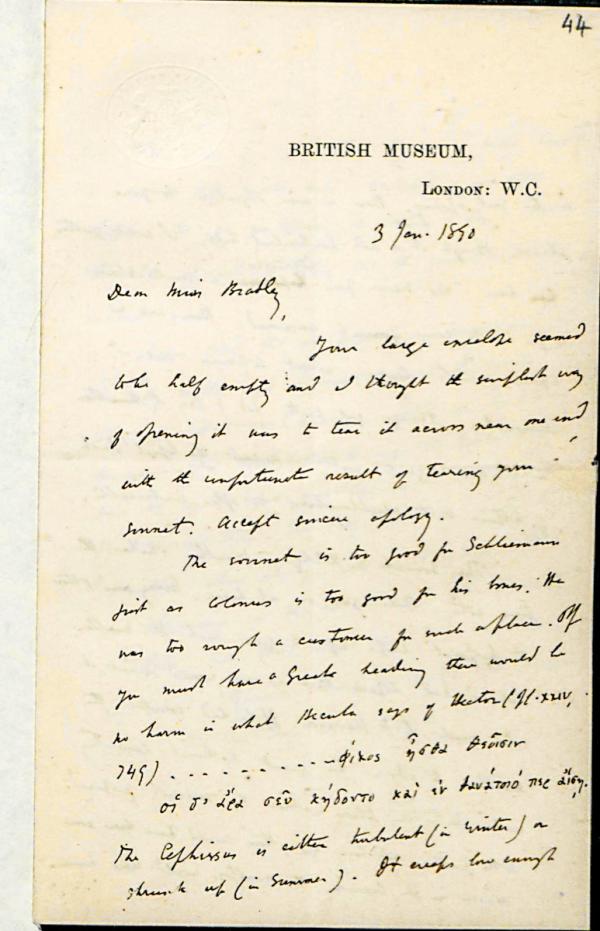 44
BRITISH MUSEUM,
LONDON: W.C.
3 Jan. 1890
Dear Miss Bradley,
Your large envelope seemed
to be half empty and I thought the simplest way
of opening it was to tear it across near one end
with the unfortunate result of tearing your
sonnet. Accept sincere apology.
The sonnet is too good for Schliemann
just as Colonus is too good for his bones. He
was too rough a customer for such a place. If
you must have a Greek heading there would be
no harm in what Hecuba says of Hector (Il. XXIV,
749) . . . . . . . . . φίλος ἦσθα θεοῖσιν
οἱ δ' ἄρα σεῦ κήδοντο καὶ ἐν θανάτοιό περ αἴσῃ.
The Cephissus is either turbulent (in Winter) or
shrunk up (in Summer). It creeps low enough